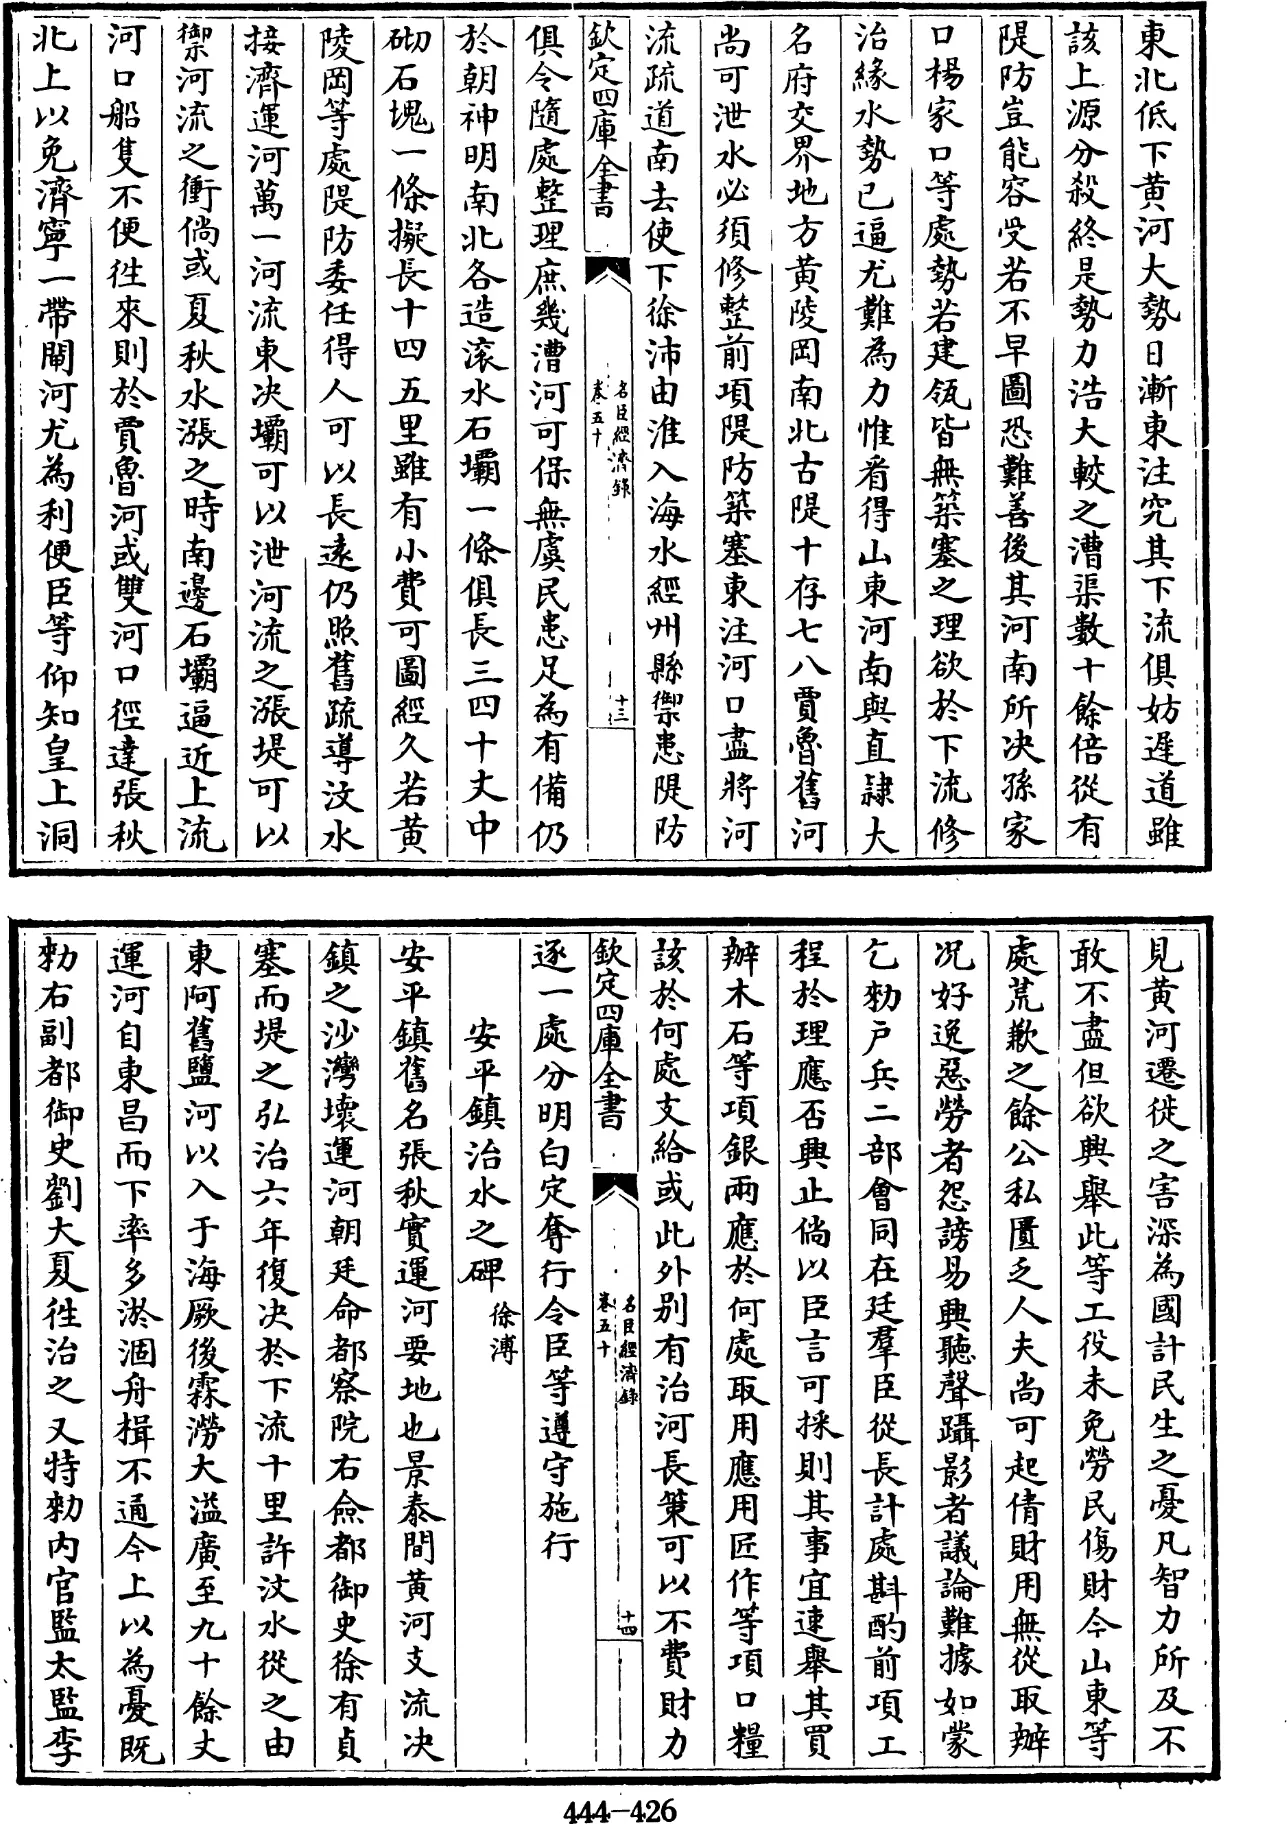 東北低下黄河大勢日漸東注究其下流俱妨遲道雖
該上源分殺終是勢力浩大較之漕渠數十餘倍從有
隄防豈能容受若不早圖恐難善後其河南所决孫家
口楊家口等處勢若建瓴皆無築塞之理欲於下流修
治緣水勢已逼尤難為力惟看得山東河南與直隸大
名府交界地方黄陵岡南北古隄十存七八賈魯舊河
尚可泄水必須修整前項隄防築塞東注河口盡將河
流疏道南去使下徐沛由淮入海水經州縣禦患隄防
欽定四庫全書
名臣經濟錄
卷五十
十三
俱令隨處整理庶幾漕河可保無虞民患足為有備仍
於朝神明南北各造滚水石壩一條俱長三四十丈中
砌石塊一條擬長十四五里雖有小費可圖經久若黄
陵岡等處隄防委任得人可以長逺仍照舊疏導汶水
接濟運河萬一河流東决壩可以泄河流之漲堤可以
禦河流之衝倘或夏秋水漲之時南邊石壩逼近上流
河口船隻不便徃來則於賈魯河或雙河口徑達張秋
北上以免濟寧一帶閘河尤為利便臣等仰知皇上洞
見黄河遷徙之害深為國計民生之憂凡智力所及不
敢不盡但欲興舉此等工役未免勞民傷財今山東等
處荒歉之餘公私匱乏人夫尚可起倩財用無從取辦
况好逸惡勞者怨謗易興聽聲躡影者議論難據如蒙
乞勑戸兵二部會同在廷羣臣從長計處斟酌前項工
程於理應否興止倘以臣言可採則其事宜速舉其買
辦木石等項銀兩應於何處取用應用匠作等項口糧
該於何處支給或此外别有治河長策可以不費財力
欽定四庫全書
名臣經濟錄
卷五十
十四
逐一處分明白定奪行令臣等遵守施行
安平鎮治水之碑 徐溥
安平鎮舊名張秋實運河要地也景泰間黄河支流决
鎮之沙灣壞運河朝廷命都察院右僉都御史徐有貞
塞而堤之弘治六年復决於下流十里許汶水從之由
東阿舊鹽河以入于海厥後霖澇大溢廣至九十餘丈
運河自東昌而下率多淤涸舟楫不通今上以為憂既
勑右副都御史劉大夏徃治之又特勑内官監太監李
444-426